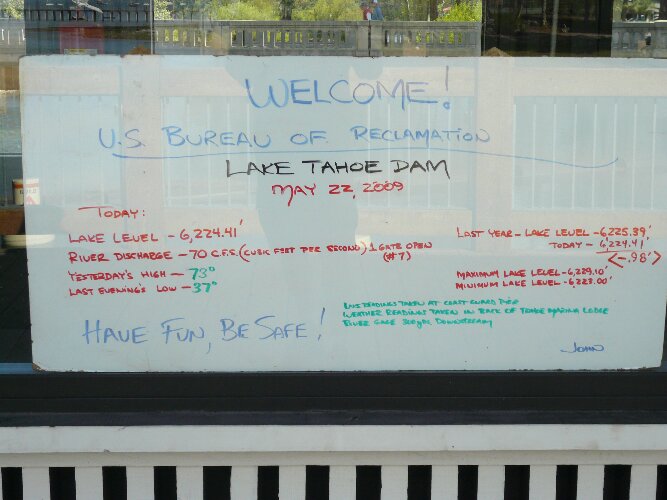 WELCOME!
U.S. BUREAU OF RECLAMATION
LAKE TAHOE DAM
MAY 22, 2009
TODAY:
LAKE LEVEL - 6,224.41'
RIVER DISCHARGE - 70 C.F.S. (CUBIC FEET PER SECOND) 1 GATE OPEN
(#7)
YESTERDAY'S HIGH - 73°
LAST EVENING'S LOW - 37°
LAST YEAR - LAKE LEVEL - 6225.39'
TODAY - 6,224.41'
<-.98'>
MAXIMUM LAKE LEVEL - 6,229.10'
MINIMUM LAKE LEVEL - 6223.00'
READINGS TAKEN AT COAST GUARD PIER
WEATHER READINGS TAKEN IN BACK OF TAHOE MARINA LODGE
RIVER GAGE DOWNSTREAM
HAVE FUN, BE SAFE!
JOHN